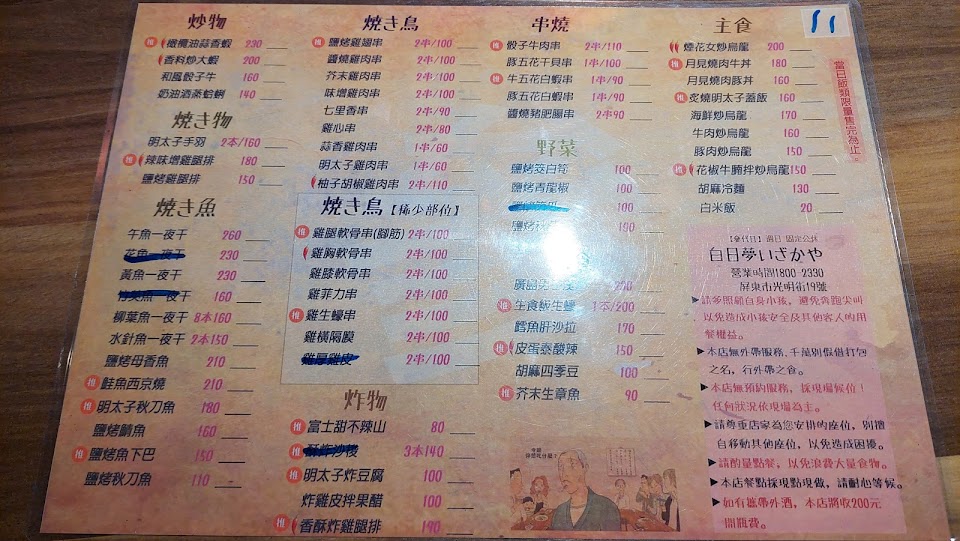 炒物
推 橄欖油蒜香蝦 230
香料炒大蝦 200
和風骰子牛 160
奶油酒蒸蛤蜊 140
焼き物
明太子手羽 2本/160
推 辣味增雞腿排 180
鹽烤雞腿排 150
焼き魚
午魚一夜干 260
花魚一夜干 230
黃魚一夜干 230
竹筴魚一夜干 160
柳葉魚一夜干 8本160
水針魚一夜干 2本150
鹽烤母香魚 210
推 鮭魚西京燒 210
推 明太子秋刀魚 180
鹽烤鯛魚 160
推 鹽烤魚下巴 150
鹽烤秋刀魚 110
焼き鳥
推 鹽烤雞翅串 2串/100
醬燒雞肉串 2串/100
芥末雞肉串 2串/100
味增雞肉串 2串/100
七里香串 2串/100
雞心串 2串/80
蒜香雞肉串 1串/60
明太子雞肉串 1串/60
柚子胡椒雞肉串 2串/110
焼き鳥【稀少部位】
推 雞腿軟骨串(腳筋) 2串/100
雞胸軟骨串 2串/100
雞膝軟骨串 2串/100
雞菲力串 2串/100
推 雞生蠔串 2串/100
雞橫隔膜 2串/100
雞厚雞皮 2串/100
炸物
推 富士甜不辣山 80
推 酥炸沙梭 3本140
推 明太子炸豆腐 100
炸雞皮拌果醋 100
推 香酥炸雞腿排 190
串燒
推 骰子牛肉串 2串/110
豚五花干貝串 1串/100
推 牛五花白蝦串 1串/90
豚五花白蝦串 1串/90
醬燒豬肥腸串 2串90
野菜
鹽烤茭白筍 100
鹽烤青龍椒 100
100
鹽烤 100
廣島 200
推 生食級生蠔 1本/200
鱈魚肝沙拉 170
推 皮蛋泰酸辣 150
胡麻四季豆 100
推 芥末生章魚 90
主食
11
推 煙花女炒烏龍 200
推 月見燒肉牛丼 180
月見燒肉豚丼 160
推 炙燒明太子蓋飯 160
海鮮炒烏龍 170
牛肉炒烏龍 160
豚肉炒烏龍 150
推 花椒牛腩拌炒烏龍 150
胡麻冷麵 130
白米飯 20
當日飯類限量售完為止。
白日夢いざかや
營業時間1800-2330
屏東市光明街19號
▶請多照顧自身小孩，避免奔跑尖叫
以免造成小孩安全及其他客人的用
餐權益。
▶本店無外帶服務，千萬別假借打包
之名，行外帶之食。
▶本店無預約服務，採現場候位！
任何狀況依現場為主。
▶請尊重店家為您安排的座位，別擅
自移動其他座位，以免造成困擾。
▶請酌量點餐，以免浪費大量食物。
▶本店餐點採現點現做，請耐心等候。
▶如有攜帶外酒，本店將收200元
開瓶費。